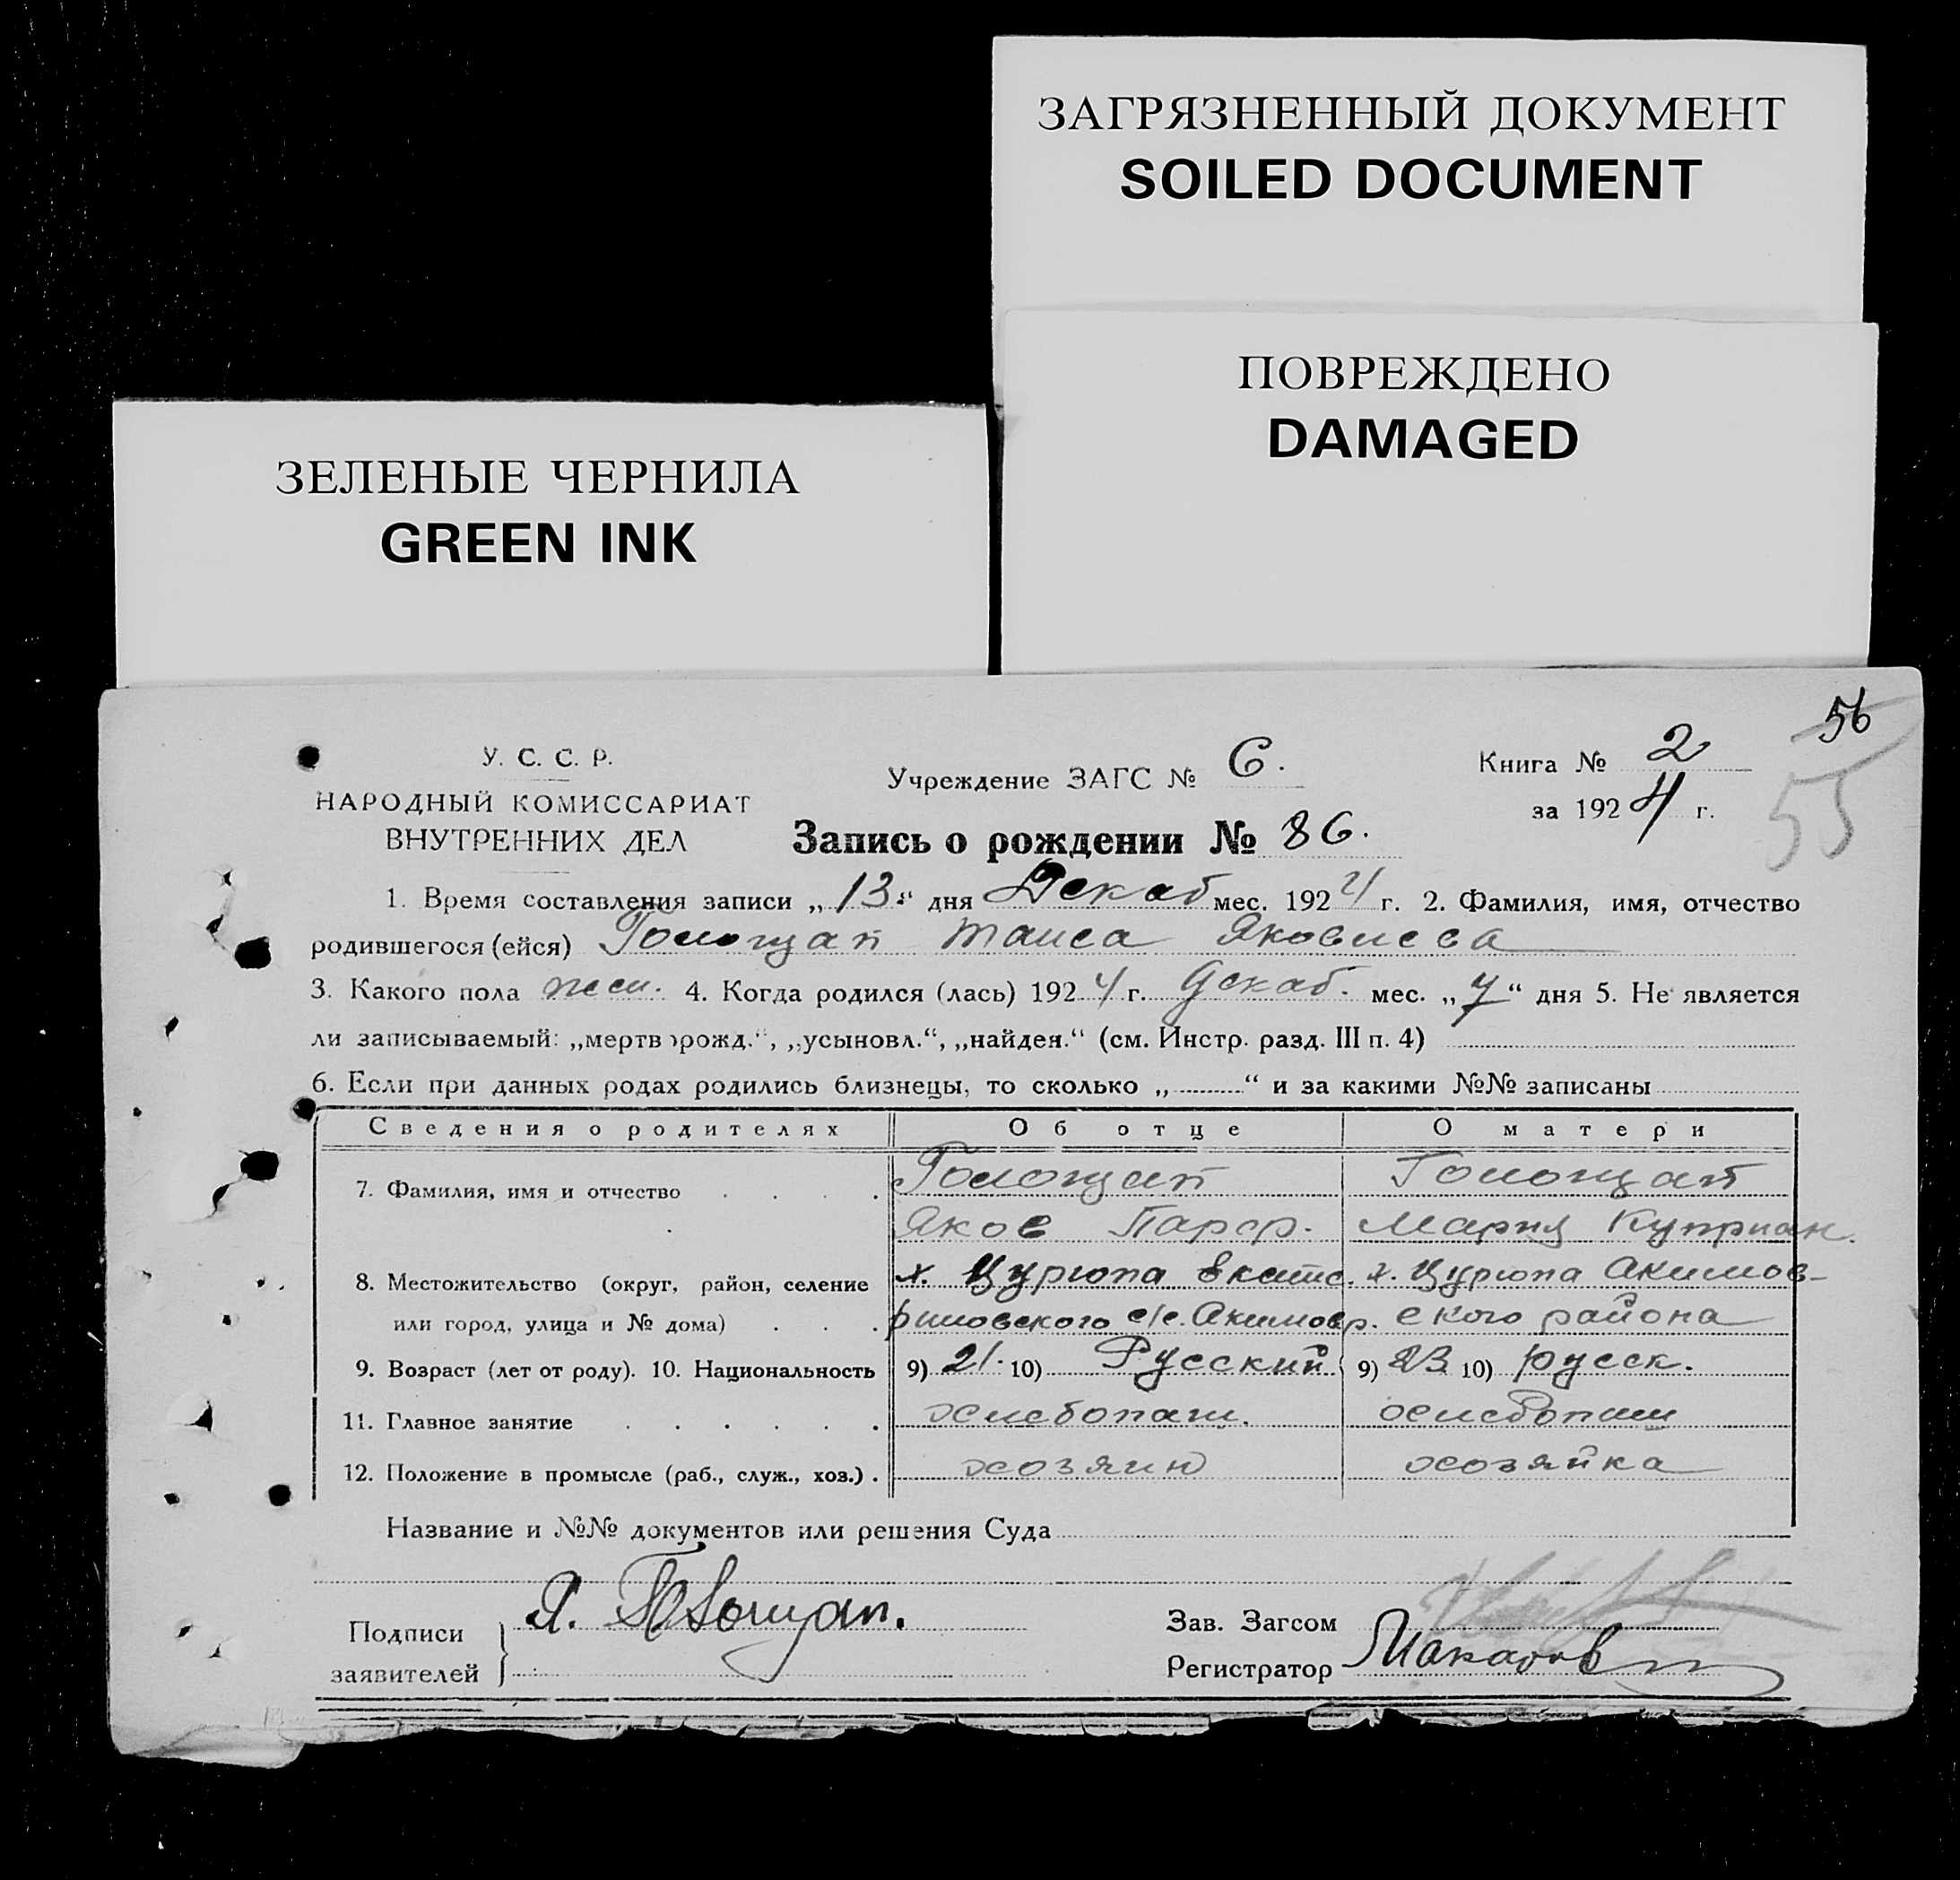 ЗАГРЯЗНЕННЫЙ ДОКУМЕНТ
SOILED DOCUMENT
ПОВРЕЖДЕНО
DAMAGED
ЗЕЛЕНЫЕ ЧЕРНИЛА
GREEN INK
56
55
У. С. С. Р.
НАРОДНЫЙ КОМИССАРИАТ
ВНУТРЕННИХ ДЕЛ
Учреждение ЗАГС № 6.
Книга № 2
за 1924 г.
Запись о рождении № 86.
1. Время составления записи „13“ дня Декаб мес. 1924 г. 2. Фамилия, имя, отчество
родившегося (ейся) Голощап Таиса Яковлева
3. Какого пола жен. 4. Когда родился (лась) 1924 г. Декаб. мес. „7“ дня 5. Не является
ли записываемый: „мертворожд.“, „усыновл.“, „найден.“ (см. Инстр. разд. III п. 4)
6. Если при данных родах родились близнецы, то сколько „ “ и за какими №№ записаны
Сведения о родителях Об отце О матери
7. Фамилия, имя и отчество Голощап Голощап
Яков Парф. Мария Куприан.
8. Местожительство (округ, район, селение х. Цурюпа Екате. х. Цурюпа Акимов-
или город, улица и № дома) риновского с/с. Акимов р. ского района
9. Возраст (лет от роду). 10. Национальность 9) 21. 10) Русский 9) 23 10) русск.
11. Главное занятие хлебопаш. хлебопаш
12. Положение в промысле (раб., служ., хоз.) хозяин хозяйка
Название и №№ документов или решения Суда
Подписи
заявителей
Я. Голощап.
Зав. Загсом
Регистратор